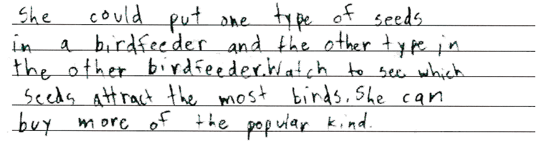 She could put one type of seeds
in a birdfeeder and the other type in
the other birdfeeder. Watch to see which
seeds attract the most birds. She can
buy more of the popular kind.